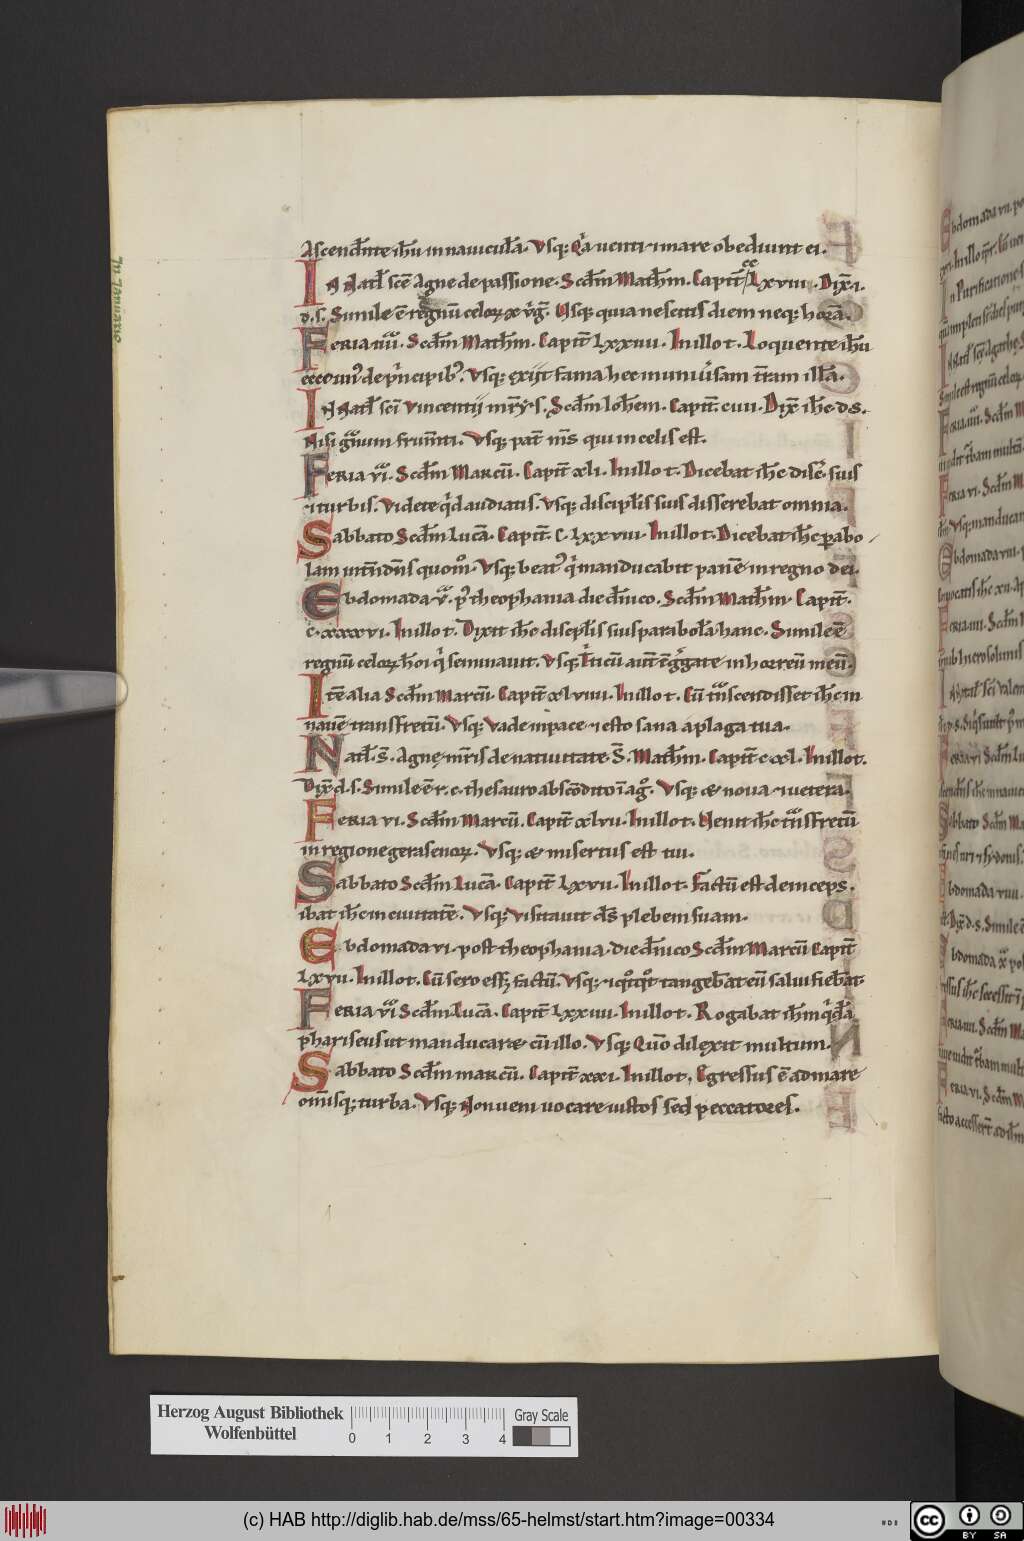 Ascendente ihu in nauicula. Vsq; Quia uenti ⁊ mare obediunt ei.
IN Natł sce Agne de passione. Scdm Mathm. Capitł cclxviii. Dix̄ i.
d. s. Simile ē regnū celoꝝ x v̄g̅. Vsq; quia nescitis diem neq; horā.
Feria iiii. Scdm Mathm. Capitł Lxxiiii. In illo t. Loquente ihu
ecce un' de p̄ncipib'. Vsq; exijt fama hec in uniu'sam t̄ram illā.
IN Natł sci Vincentij mr̄ẏs. Scdm Iohem. Capitł. cuii. Dix̄ ihc d. s.
Nisi g̊num frum̄ti. Vsq; pat' m̄s qui in celis est.
Feria vi. Scdm Marcū. Capitł xli. In illo t. Dicebat ihc disc̄ suis
⁊ turbis. Videte q'd audiatis. Vsq; discipłis suis disserebat omnia.
Sabbato Scdm Lucā. Capitł. C. Lxxviii. In illo t. Dicebat ihc parabo
lam intn̄dn̄s quom̊. Vsq; beat' q' manducabit panē in regno dei.
Ebdomada v. p' theophania die dn̄ico. Scdm Mathm. Capitł.
c. xxxxvi. In illo t. Dixit ihc discipłis suis parabolā hanc. Simile ē
regnū celoꝝ hoi q' seminauit. Vsq; t'ticū aut̄ ɔg̊gate in horreū meū.
Itē alia Scdm Marcū. Capitł xlviiii. In illo t. Cū tn̄scendisset ihc in
nauē transfretū. Vsq; Vade in pace ⁊ esto sana a plaga tua.
Natł. s. Agnę mr̄is de natiuitate. S. Mathm. Capitł c xl. In illo t.
Dix̄ d. s. Simile ē r. c. thesauro abscōdito ī ag̊. Vsq; & noua ⁊ uetera.
Feria vi. Scdm Marcū. Capitł xlvii. In illo t. Venit ihc tn̄sfretū
in regione gerasenoꝝ. Vsq; & misertus est tui.
Sabbato Scdm Lucā. Capitł Lxvii. In illo t. Factū est deinceps.
ibat ihc in ciuitatē. Vsq; Visitauit ds̄ plebem suam.
Ebdomada vi. post theophania. die dn̄ico Scdm Marcū Capitł
Lxvii. In illo t. Cū sero ess; factū. Vsq; ⁊ q'tq't tangebat eū salui fiebat.
Feria vi Scdm Lucā. Capitł Lxxiiii. In illo t. Rogabat ihm q'dā
phariseus ut manducaret cū illo. Vsq; Quō dilexit multum.
Sabbato Scdm marcū. Capitł xxi. In illo t. Egressus ē ad mare
om̄isq; turba. Vsq; Non ueni uocare iustos sed peccatores.
In Januario
Herzog August Bibliothek
Wolfenbüttel
0 1 2 3 4
Gray Scale
(c) HAB http://diglib.hab.de/mss/65-helmst/start.htm?image=00334
cc BY SA